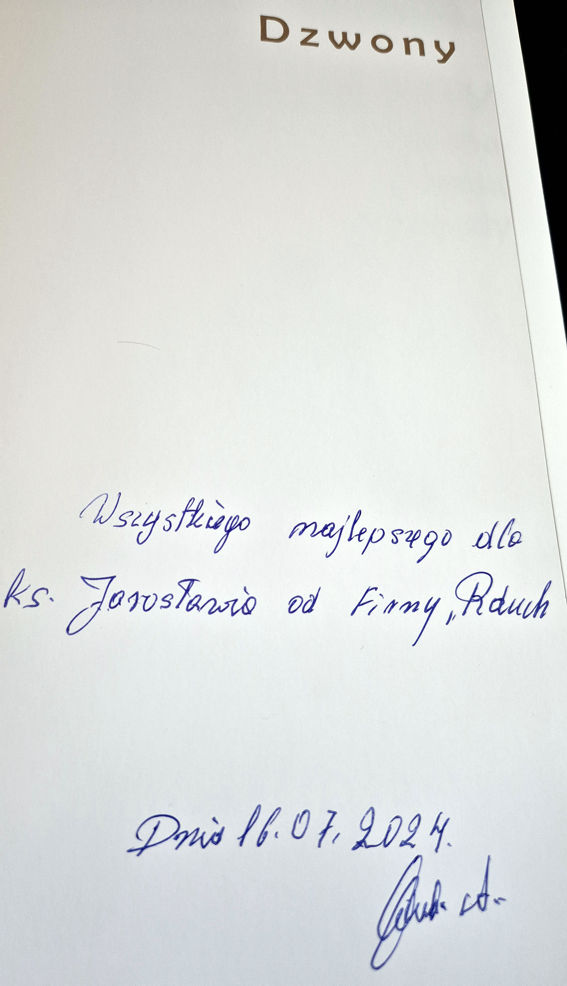 Dzwony
Wszystkiego najlepszego dla
ks. Jarosława od Firmy „Rduch
Dnia 16.07.2024.